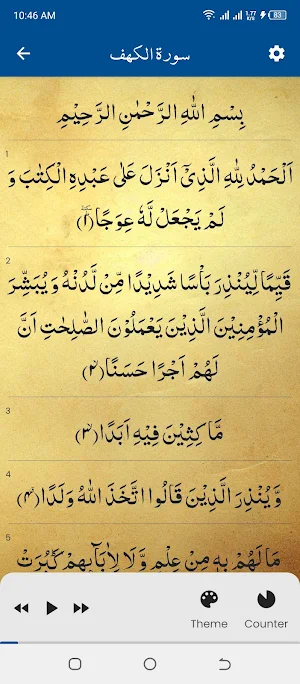 10:46 AM
1.77 K/s 83
سورة الكهف
بِسْمِ اللهِ الرَّحْمٰنِ الرَّحِيْمِ
1
اَلْحَمْدُ لِلّٰهِ الَّذِيْۤ اَنْزَلَ عَلٰى عَبْدِهِ الْكِتٰبَ وَ
لَمْ يَجْعَلْ لَّهٗ عِوَجًا(۱)
2
قَيِّمًا لِّيُنْذِرَ بَاْسًا شَدِيْدًا مِّنْ لَّدُنْهُ وَ يُبَشِّرَ
الْمُؤْمِنِيْنَ الَّذِيْنَ يَعْمَلُوْنَ الصّٰلِحٰتِ اَنَّ
لَهُمْ اَجْرًا حَسَنًا(۲)
3
مَّاكِثِيْنَ فِيْهِ اَبَدًا(۳)
4
وَّ يُنْذِرَ الَّذِيْنَ قَالُوا اتَّخَذَ اللّٰهُ وَلَدًا(۴)
5
مَا لَهُمْ بِهٖ مِنْ عِلْمٍ وَّ لَا لِاٰبَآىٕهِمْ كَبُرَتْ
Theme
Counter